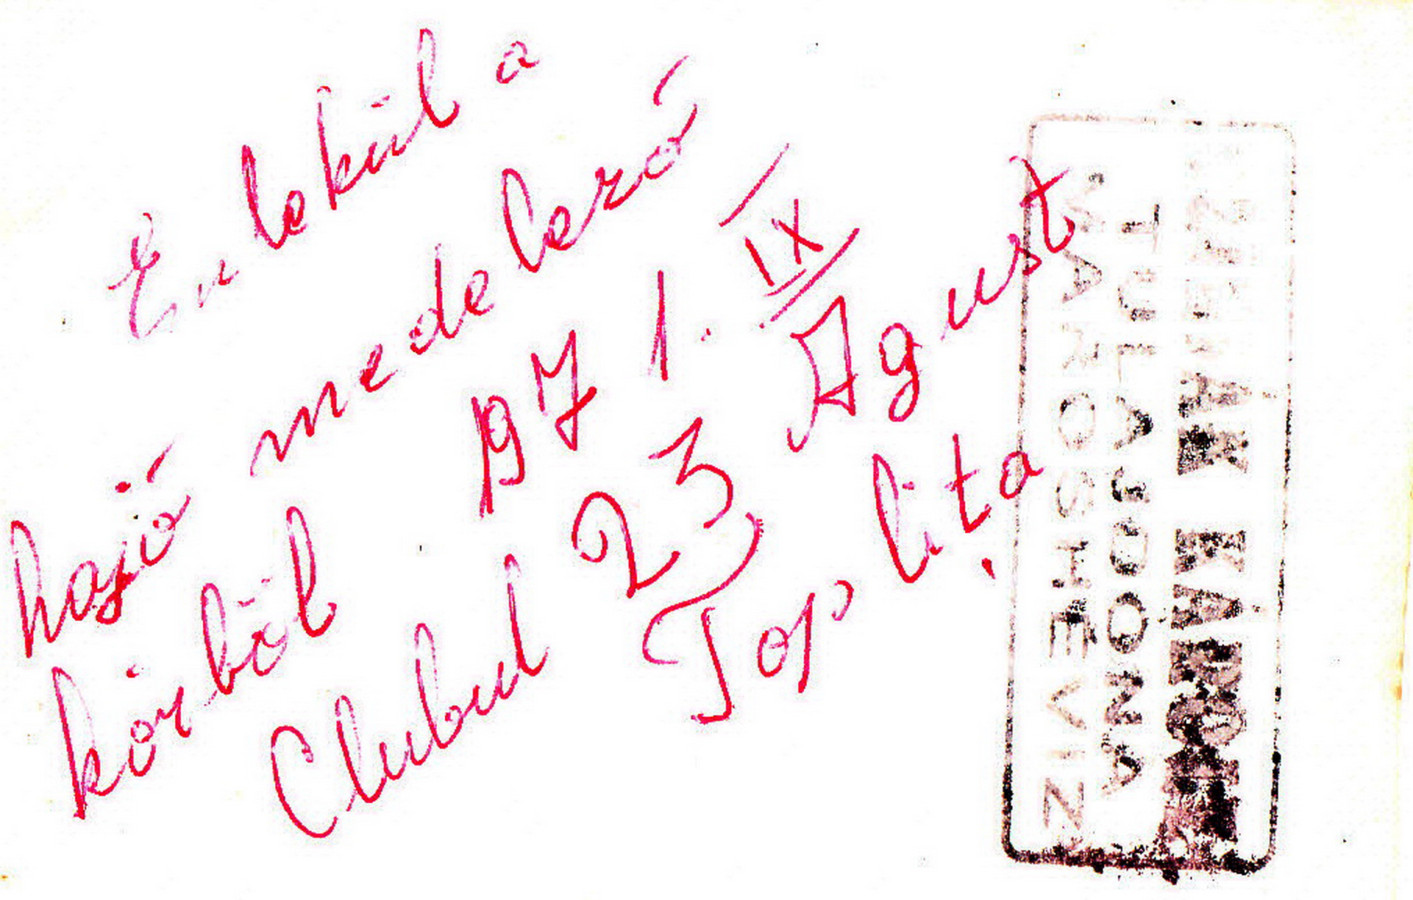 Emlekül a
hajó medelező
körből 1971. IX
Clubul 23 Agust
Topliţa
KÁROLY
TULAJDONA
MAROSHÉVIZ